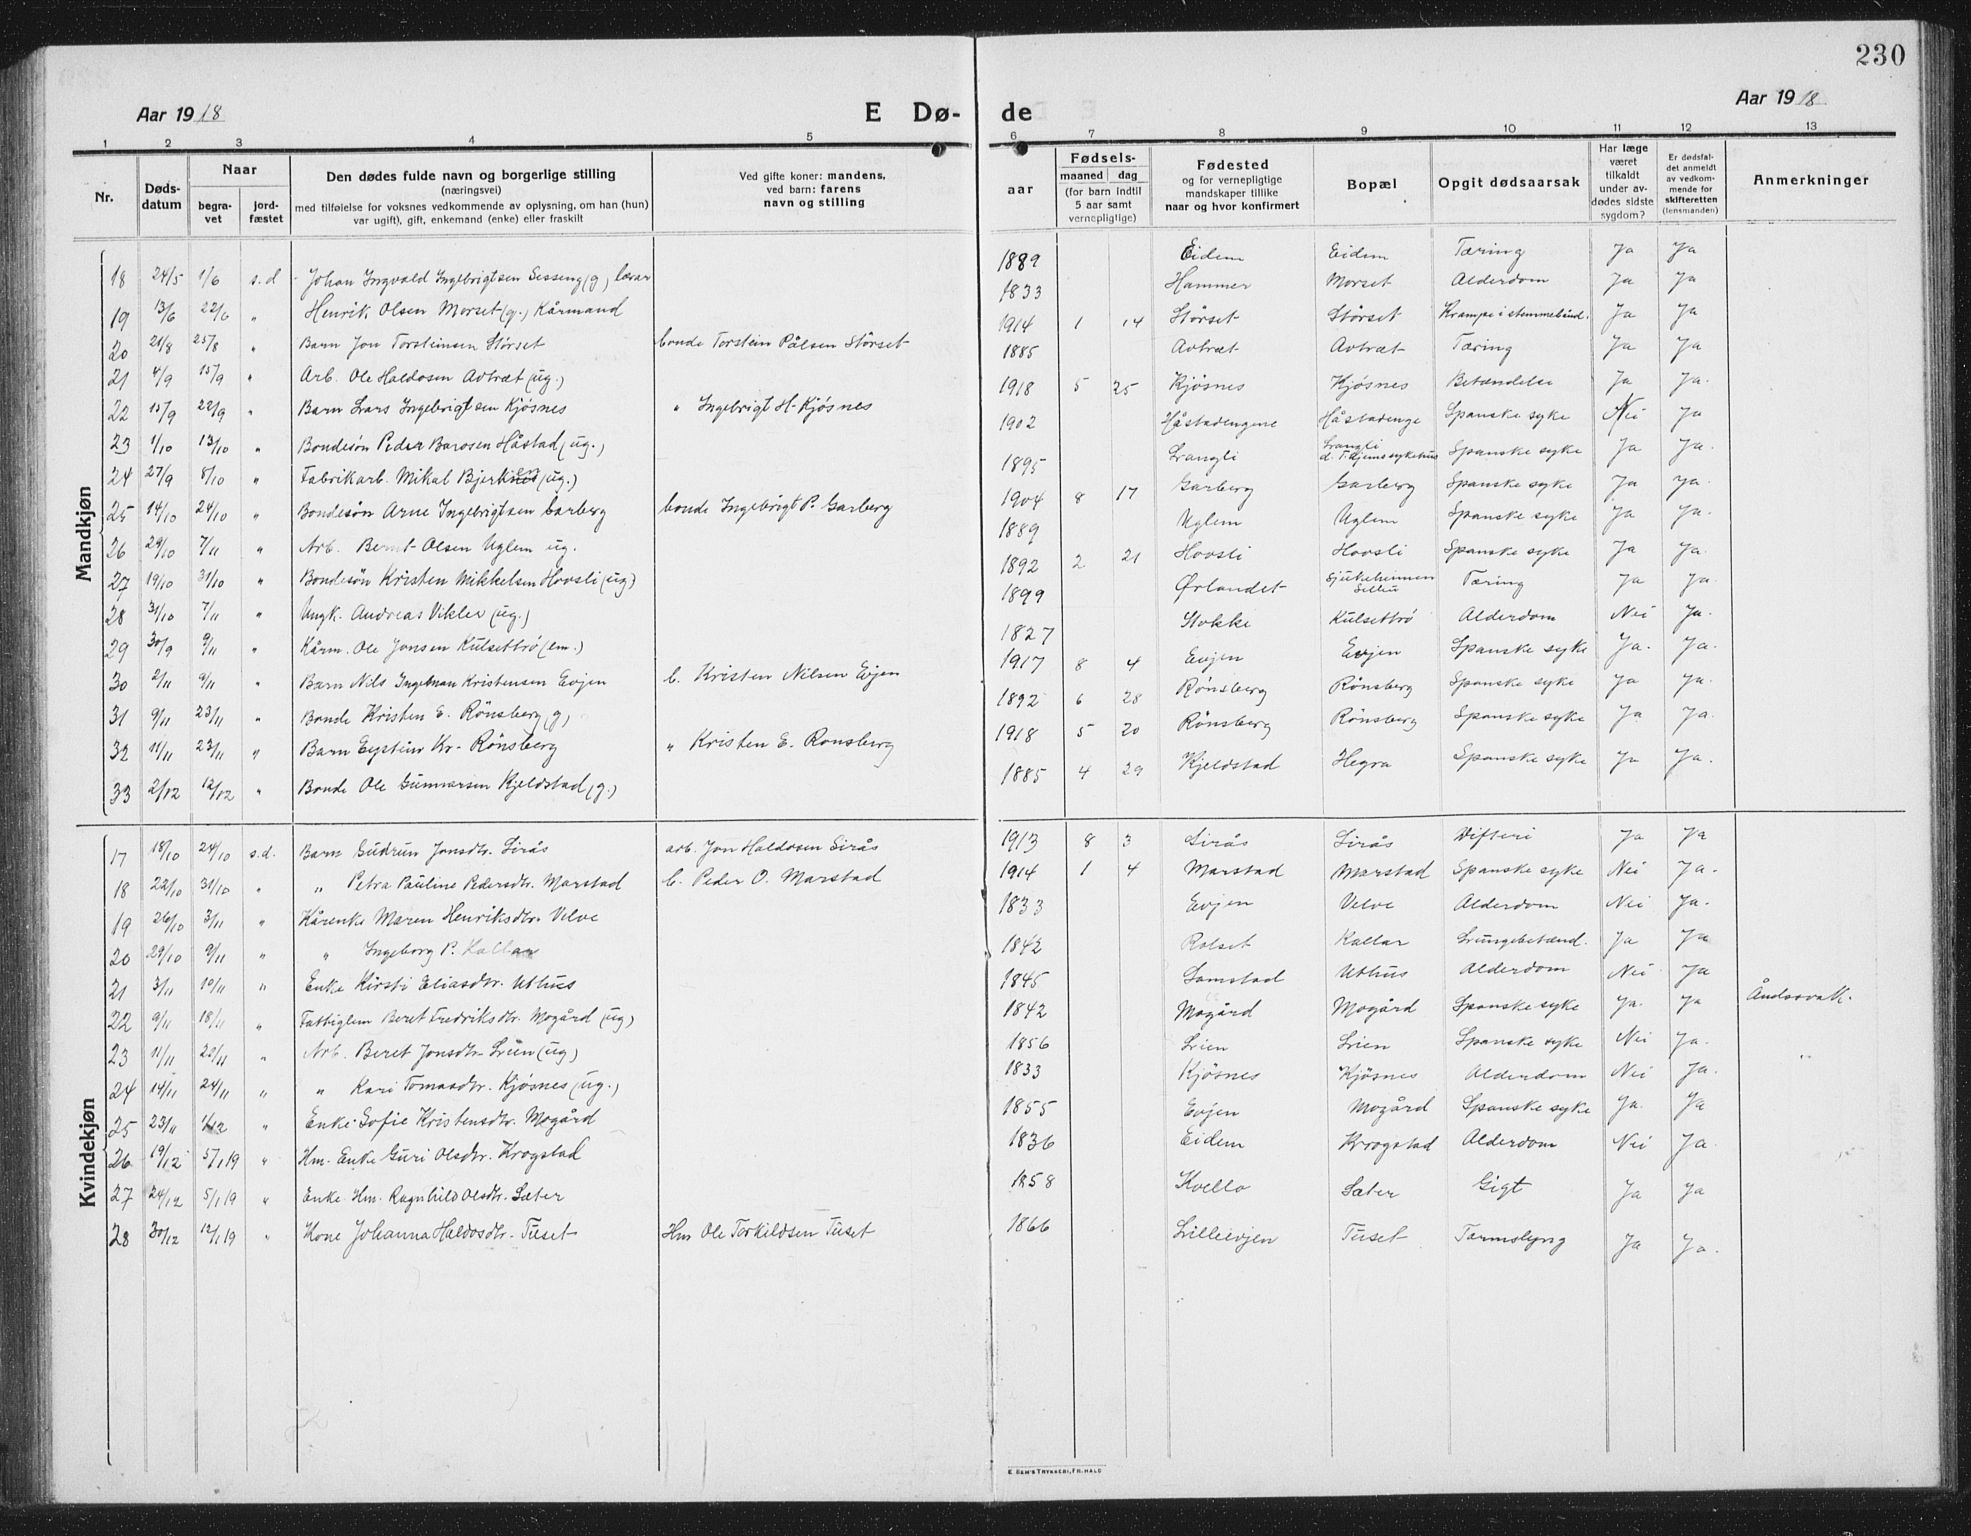 230
Aar 1918 E Dø- de Aar 1918
1 2 3 4 5 6 7 8 9 10 11 12 13
Nr. Døds-datum Naar begra-vet jord-fæstet Den dødes fulde navn og borgerlige stilling (næringsvei) med tilføielse for voksnes vedkommende av oplysning, om han (hun) var ugift), gift, enkemand (enke) eller fraskilt Ved gifte koner: mandens, ved barn: farens navn og stilling aar Fødsels- maaned dag (for barn indtil 5 aar samt vernepligtige) Fødested og for vernepligtige mandskaper tillike naar og hvor konfirmert Bopæl Opgit dødsaarsak Har læge været tilkaldt under av-dødes sidste sygdom? Er dødsfal-det anmeldt av vedkom-mende for skifteretten (lensmanden) Anmerkninger
Mandkjøn
18 24/5 1/6 s.d - Johan Ingvald Ingebrigtsen Sesseng (g) lærar 1889 Eidem Eidem Tæring Ja Ja
19 13/6 22/6 " Henrik Olsen Morset (g.) Kårmand 1833 Hammer Morset Alderdom Ja Ja
20 21/8 25/8 " Barn Jon Torsteinsen Störset bonde Torstein Pålsen Störset 1914 1 14 Störset Störset Krampe i stemmebånd. Ja Ja
21 4/9 15/9 " Arb. Ole Haldosen Avtræt (ug.) 1885 Avtræt Avtræt Tæring Ja Ja
22 15/9 22/9 " Barn Lars Ingebrigtsen Kjösnes " Ingebrigt H. Kjösnes 1918 5 25 Kjösnes Kjösnes Betændelse Ja Ja.
23 1/10 13/10 " Bondesön Peder Barosen Håstad (ug.) 1902 Håstadengene Håstadenge Spanske syke Nei Ja
24 27/9 8/10 " Fabrikarb. Mikal (ug.) 1895 Langli Langli d. T.hjems sykehus Spanske syke Ja Ja.
25 14/10 24/10 " Bondesön Arne Ingebrigtsen Garberg bonde Ingebrigt P. Garberg 1904 8 17 Garberg Garberg Spanske syke Ja Ja.
26 29/10 7/11 " Arb. Bernt Olsen Uglem ug. 1889 Uglem Uglem Spanske syke Ja Ja.
27 19/10 31/10 " Bondesön Kristen Mikkelsen Hovsli (ug.) 1892 2 21 Hovsli Hovsli Spanske syke Ja Ja.
28 31/10 7/11 " Ungk. Andreas Vikler (ug.) 1899 Ørlandet Sjukeheimen Selbu Tæring Ja Ja.
29 30/9 9/11 " Kårm. Ole Jonsen Kulsettrö (em.) 1827 Stokke Kulsettrö Alderdom Nei Ja.
30 2/11 9/11 " Barn Nils Ingelman Kristensen Evjen b. Kristen Nilsen Evjen 1917 8 4 Evjen Evjen Spanske syke Ja. Ja.
31 9/11 23/11 " Bonde Kristen E. Rönsberg (g) 1892 6 28 Rönsberg Rönsberg Spanske syke Ja Ja.
32 11/11 23/11 " Barn Eystein Kr. Rönsberg " Kristen E. Ronsberg 1918 5 20 Rönsberg Rönsberg Spanske syke Ja Ja.
33 2/12 12/12 " Bonde Ole Gunnarsen Kjeldstad (g.) 1885 4 29 Kjeldstad Hegra Spanske syke Ja Ja.
Kvindekjøn
17 18/10 24/10 s.d. Barn Gudrun Jonsdtr. Sirås arb. Jon Haldosen Sirås 1913 8 3 Sirås Sirås Difteri Ja Ja
18 22/10 31/10 " " Petra Pauline Pedersdtr. Marstad b. Peder O. Marstad 1914 1 4 Marstad Marstad Spanske syke Nei Ja.
19 26/10 3/11 " Kårenke Maren Henriksdtr. Velve 1833 Evjen Velve Alderdom Nei Ja.
20 29/10 9/11 " " Ingeborg P. Kallar 1842 Rolset Kallar Lungebetænd. Ja Ja
21 3/11 10/11 " Enke Kirsti Eliasdtr. Uthus 1845 Samstad Uthus Alderdom Nei Ja
22 9/11 18/11 " Fattiglem Beret Fredriksdtr. Mogård (ug) 1842 Mogård Mogård Spanske syke Ja. Ja Åndssvak.
23 11/11 20/11 " Arb. Beret Jonsdtr. Lien (ug) 1856 Lien Lien Spanske syke Nei Ja.
24 14/11 24/11 " " Kari Tomasdtr. Kjösnes (ug.) 1833 Kjösnes Kjösnes Alderdom Nei Ja.
25 23/11 1/12 " Enke Sofie Kristensdtr. Mogård 1855 Evjen Mogård Spanske syke Ja. Ja
26 19/12 5/1 19 " Hm. Enke Guri Olsdtr. Krogstad 1836 Eidem Krogstad Alderdom Nei Ja
27 24/12 5/1 19 " Enke Hm. Ragnhild Olsdtr. Sæter 1858 Kvello Sæter Gigt Ja Ja
28 30/12 12/1 19 " Kone Johanna Haldosdtr. Tuset Hm Ole Torkildsen Tuset 1866 Lilleevjen Tuset Tarmslyng Ja Ja.
E. SEM'S TRYKKERI, FR.HALD